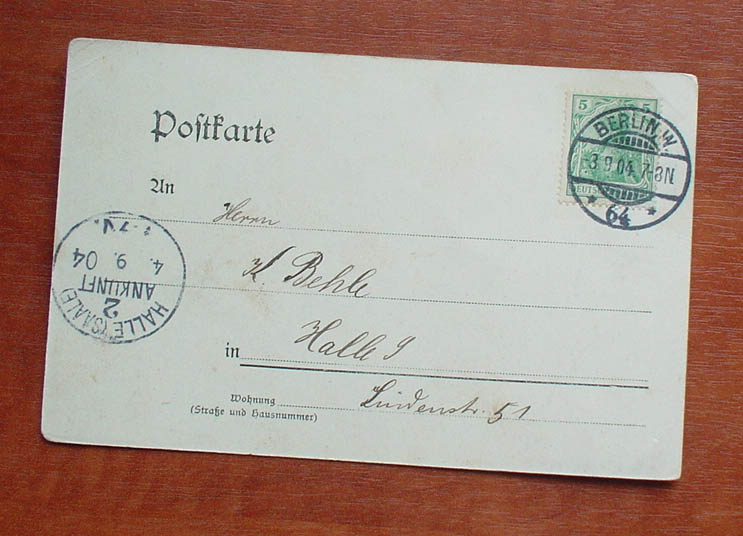 Postkarte
5 5
BERLIN. W.
3 9 04. 7-8N
* 64 *
An
Herrn
K. Behle
in Halle S
Wohnung
(Straße und Hausnummer)
Lindenstr. 51
HALLE (SAALE)
2
ANKUNFT
4. 9. 04